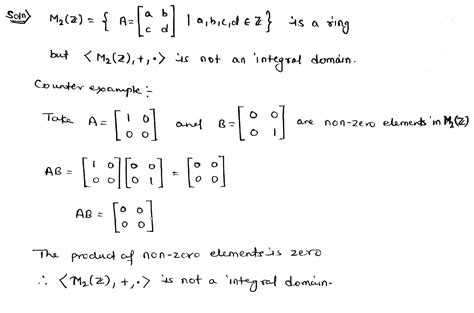 Soln) M₂(Z) = { A = [a b; c d] | a,b,c,d ∈ Z } is a ring
but ⟨M₂(Z), +, •⟩ is not an integral domain.
Counter example :-
Take A = [1 0; 0 0] and B = [0 0; 0 1] are non-zero elements in M₂(Z)
AB = [1 0; 0 0] [0 0; 0 1] = [0 0; 0 0]
AB = [0 0; 0 0]
The product of non-zero elements is zero
∴ ⟨M₂(Z), +, •⟩ is not a integral domain.